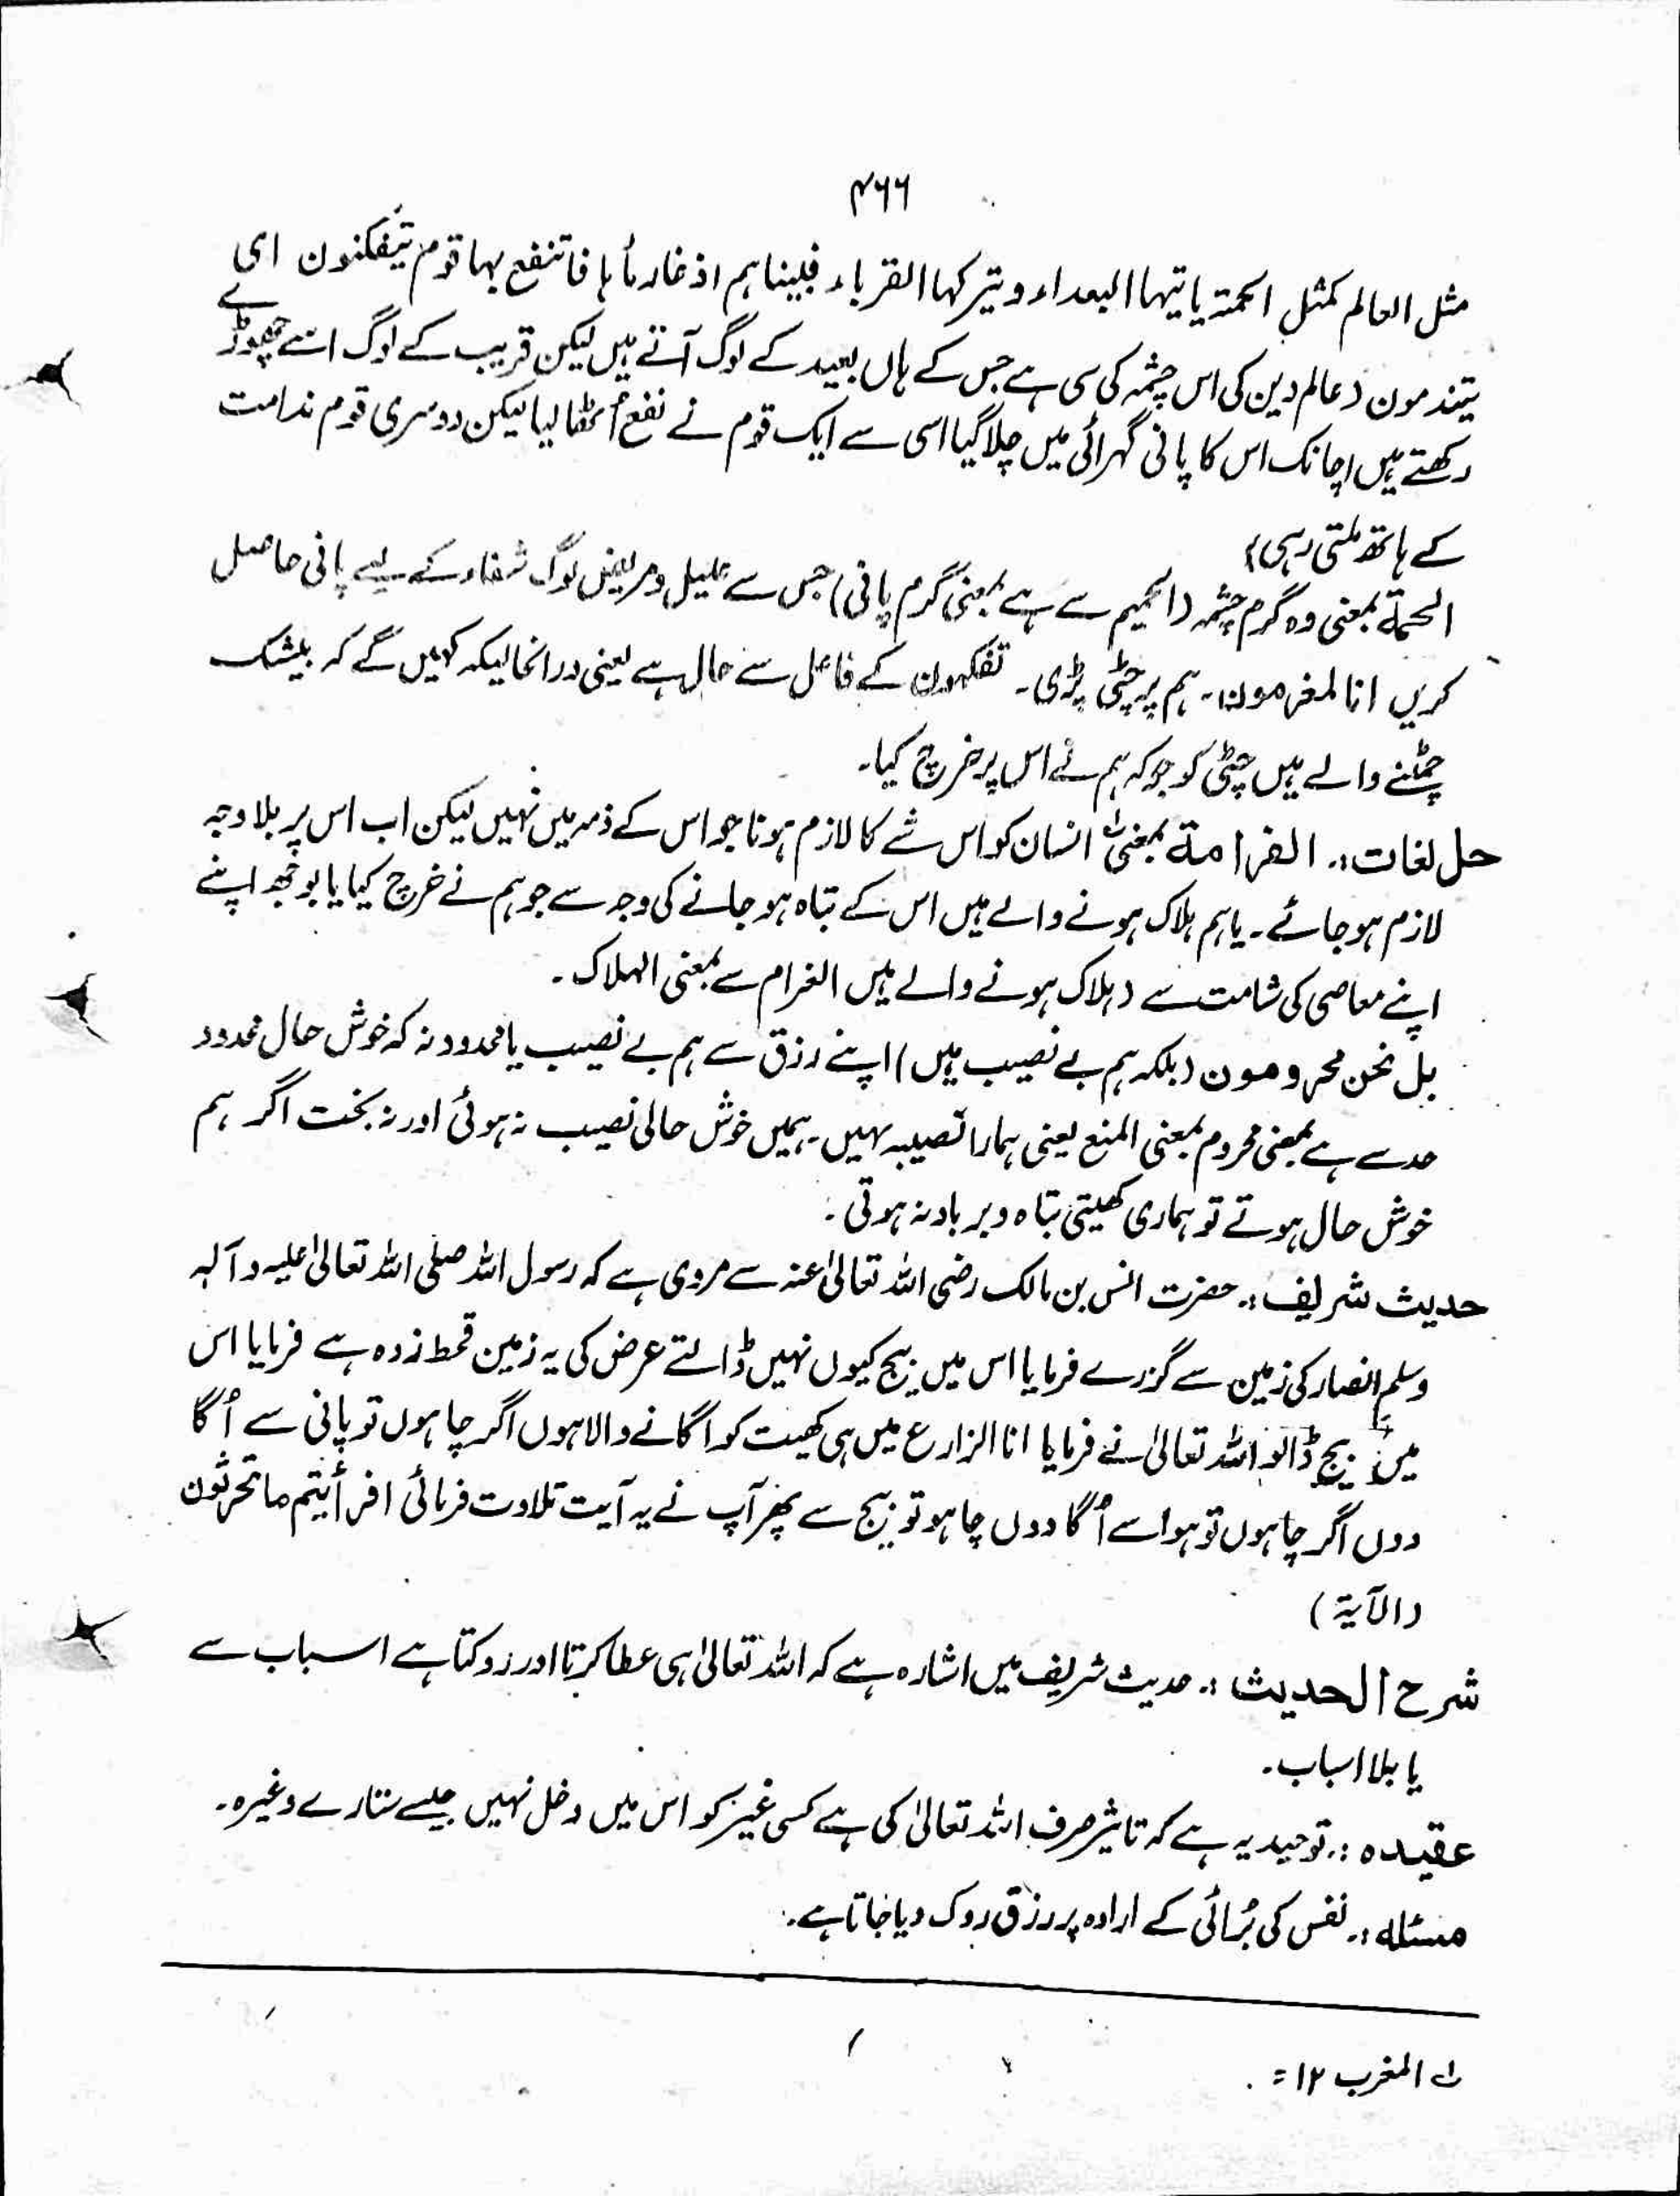 ۴۶۶
مثل العالم کمثل الحمۃ یاتیہا البعداء ویترکہا القرباء فبیناہم اذ غار مأہا فانتفع بہا قوم تیفکنون ای
یتندمون (عالم دین کی اس چشمہ کی سی ہے جس کے ہاں بعید کے لوگ آتے ہیں لیکن قریب کے لوگ اسے چھوڑے
رکھتے ہیں اچانک اس کا پانی گہرائی میں چلا گیا اسی سے ایک قوم نے نفع اُٹھا لیا لیکن دوسری قوم ندامت
کے ہاتھ ملتی رہی)
الحمۃ بمعنی وہ گرم چشمہ (الحمیم سے ہے بمعنی گرم پانی) جس سے علیل و مریض لوگ شفاء کے لیے پانی حاصل
کریں انا لمغرمون۔ ہم پر چٹی پڑی۔ تفکہون کے فاعل سے حال ہے یعنی درانحالیکہ کہیں گے کہ بیشک
چمٹنے والے ہیں چٹی کو جو کہ ہم نے اس پر خرچ کیا۔
حل لغات:۔ الغرامۃ بمعنیٰ انسان کو اس شے کا لازم ہونا جو اس کے ذمہ میں نہیں لیکن اب اس پر بلا وجہ
لازم ہو جائے۔ یا ہم ہلاک ہونے والے ہیں اس کے تباہ ہو جانے کی وجہ سے جو ہم نے خرچ کیا یا بوجھ اپنے
اپنے معاصی کی شامت سے (ہلاک ہونے والے ہیں الغرام سے بمعنی الہلاک۔
بل نحن محرومون (بلکہ ہم بے نصیب ہیں) اپنے رزق سے ہم بے نصیب یا محدود نہ کہ خوش حال محدود
حد سے ہے بمعنی محروم بمعنی المنع یعنی ہمارا نصیبہ نہیں۔ ہمیں خوش حالی نصیب نہ ہوئی اور نہ بخت اگر ہم
خوش حال ہوتے تو ہماری کھیتی تباہ و برباد نہ ہوتی۔
حدیث شریف:۔ حضرت انس بن مالک رضی اللہ تعالیٰ عنہ سے مروی ہے کہ رسول اللہ صلی اللہ تعالیٰ علیہ وآلہ
وسلم انصار کی زمین سے گزرے فرمایا اس میں بیج کیوں نہیں ڈالتے عرض کی یہ زمین قحط زدہ ہے فرمایا اس
میں بیج ڈالو اللہ تعالیٰ نے فرمایا انا الزارع میں ہی کھیت کو اگانے والا ہوں اگر چاہوں تو پانی سے اُگا
دوں اگر چاہوں تو ہوا سے اُگا دوں چاہو تو بیج سے پھر آپ نے یہ آیت تلاوت فرمائی افرأیتم ما تحرثون
(الآیۃ)
شرح الحدیث:۔ حدیث شریف میں اشارہ ہے کہ اللہ تعالیٰ ہی عطا کرتا اور روکتا ہے اسباب سے
یا بلا اسباب۔
عقیدہ:۔ توحید یہ ہے کہ تاثیر صرف اللہ تعالیٰ کی ہے کسی غیر کو اس میں دخل نہیں جیسے ستارے وغیرہ۔
مسئلہ:۔ نفس کی بُرائی کے ارادہ پر رزق روک دیا جاتا ہے۔
المغرب ۱۲ =